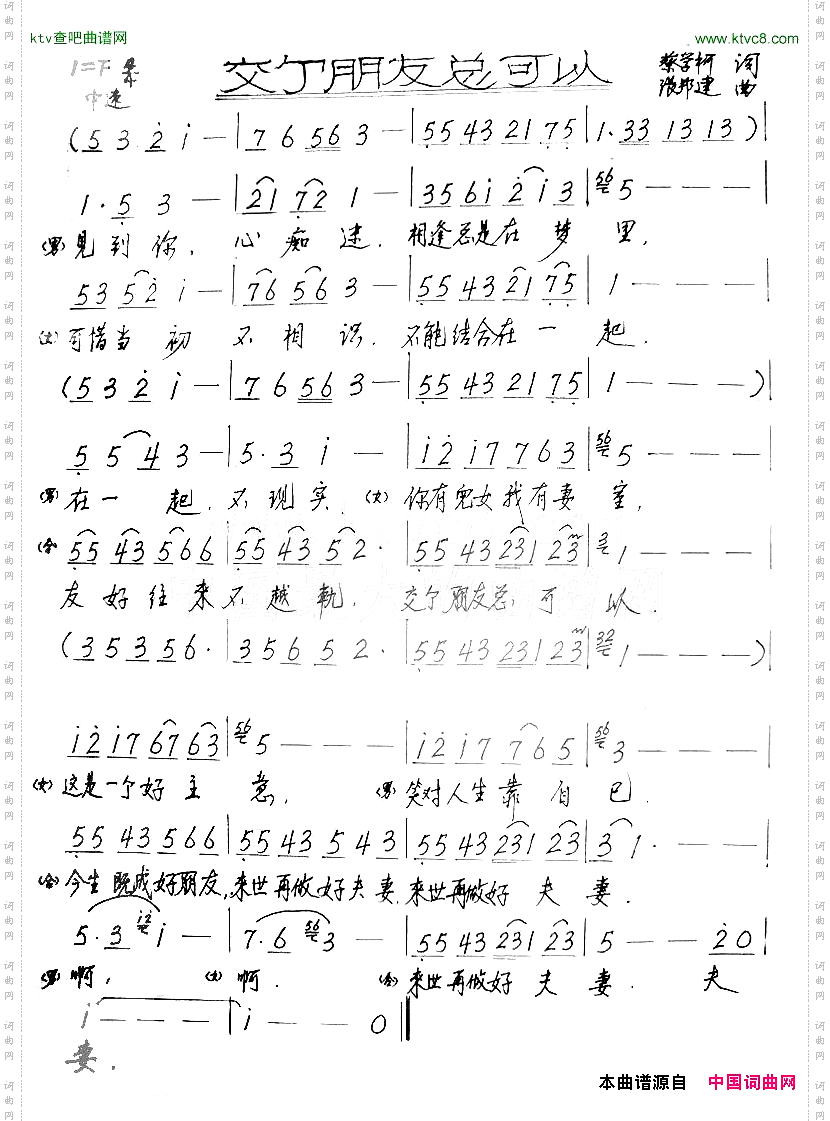 ktv查吧曲谱网
www.ktvc8.com
1=F 4/4
交个朋友总可以
蔡学柯 词
中速
邦建 曲
(5 3 2 i — | 7 6 5 6 3 — | 5 5 4 3 2 1 7 5 | 1 . 3 3 1 3 1 3 ) |
1 . 5 3 — | 2 1 7 2 1 — | 3 5 6 i 2 i 3 | 56 5 — — — |
(男) 见到你, 心痴迷. 相逢总是在梦里,
5 3 5 2 i — | 7 6 5 6 3 — | 5 5 4 3 2 1 7 5 | 1 — — — |
(女) 可惜当初不相识. 不能结合在一起.
(5 3 2 i — | 7 6 5 6 3 — | 5 5 4 3 2 1 7 5 | 1 — — — ) |
5 5 4 3 — | 5 . 3 i — | i 2 i 7 7 6 3 | 56 5 — — — |
(男) 在一起. 不现实. (女) 你有儿女我有妻室,
(合) 5 5 4 3 5 6 6 | 5 5 4 3 5 2 . | 5 5 4 3 2 3 1 2 3 | 2 1 — — — |
友好往来不越轨. 交个朋友总可以.
(3 5 3 5 6 . | 3 5 6 5 2 . | 5 5 4 3 2 3 1 2 3 | 32 1 — — — ) |
i 2 i 7 6 7 6 3 | 56 5 — — — | i 2 i 7 7 6 5 | 56 3 — — — |
(女) 这是一个好主意, (男) 笑对人生靠自己.
5 5 4 3 5 6 6 | 5 5 4 3 5 4 3 | 5 5 4 3 2 3 1 2 3 | 3 1 . — — |
(合) 今生既成好朋友, 来世再做好夫妻. 来世再做好夫妻.
5 . 3 12 i — | 7 . 6 56 3 — | 5 5 4 3 2 3 1 2 3 | 5 — — 2 0 |
(男) 啊, (女) 啊. (合) 来世再做好夫妻. 夫
i — — — | i — — 0 ‖
妻.
本曲谱源自 中国词曲网
词曲网